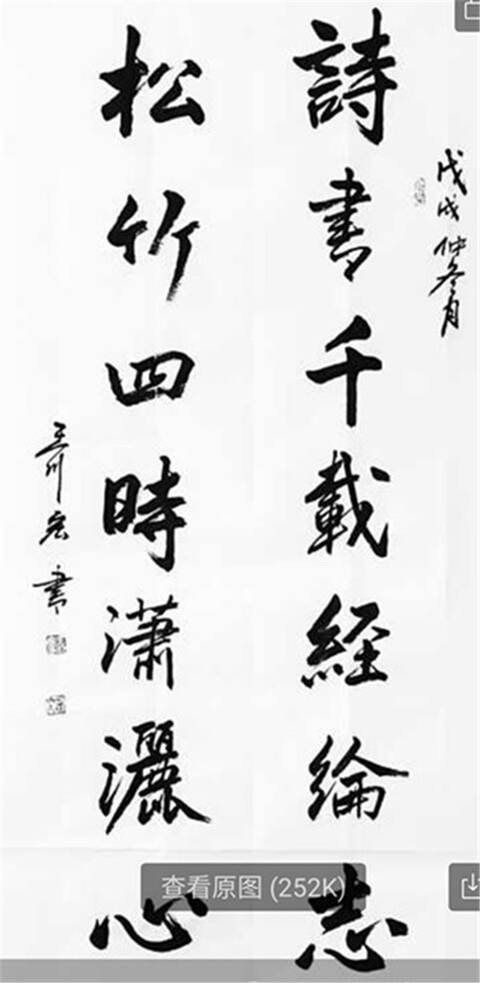 戊戌仲冬月
詩書千載經綸志
松竹四時瀟灑心
王川宏書
查看原图 (252K)